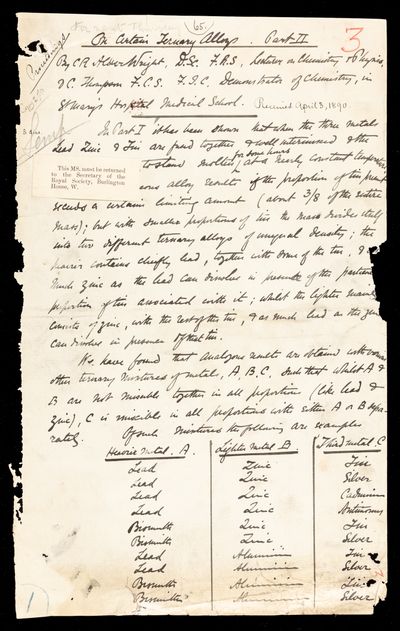 (65.)
On Certain Ternary Alloys. Part II
3
Proceedings
By C R Alder Wright, D.Sc. F.R.S., Lecturer on Chemistry & Physics,
& C. Thompson F.C.S. F.I.C. Demonstrator of Chemistry, in
St Mary's Hospital Medical School. Received April 3, 1890.
In Part I it has been shown that when the three metals
Lead Zinc & Tin are fused together & well intermixed & then
for some hours
to stand molten at a nearly constant temperature
This MS. must be returned
to the Secretary of the
Royal Society, Burlington
House, W.
alloy results if the proportion of tin present
exceeds a certain limiting amount (about 3/8 of the entire
mass); but with smaller proportions of tin the mass divides itself
into two different ternary alloys of unequal density; the
heavier contains chiefly lead, together with some of the tin, &
much zinc as the lead can dissolve in presence of the particular
proportion of tin associated with it; whilst the lighter mainly
consists of zinc, with the rest of the tin, & as much lead as the zinc
can dissolve in presence of that tin.
We have found that analogous results are obtained with various
other ternary mixtures of metal, A, B, C, such that whilst A &
B are not miscible together in all proportions (like lead &
zinc), C is miscible in all proportions with either A or B sepa-
rately. Of such mixtures the following are examples
Heavier Metal. A. Lighter Metal B. Third metal. C
Lead Zinc Tin
Lead Zinc Silver
Lead Zinc Cadmium
Lead Zinc Antimony
Bismuth Zinc Tin
Bismuth Zinc Silver
Lead Aluminium Tin
Lead Aluminium Silver
Bismuth Aluminium Tin
Bismuth Aluminium Silver
1